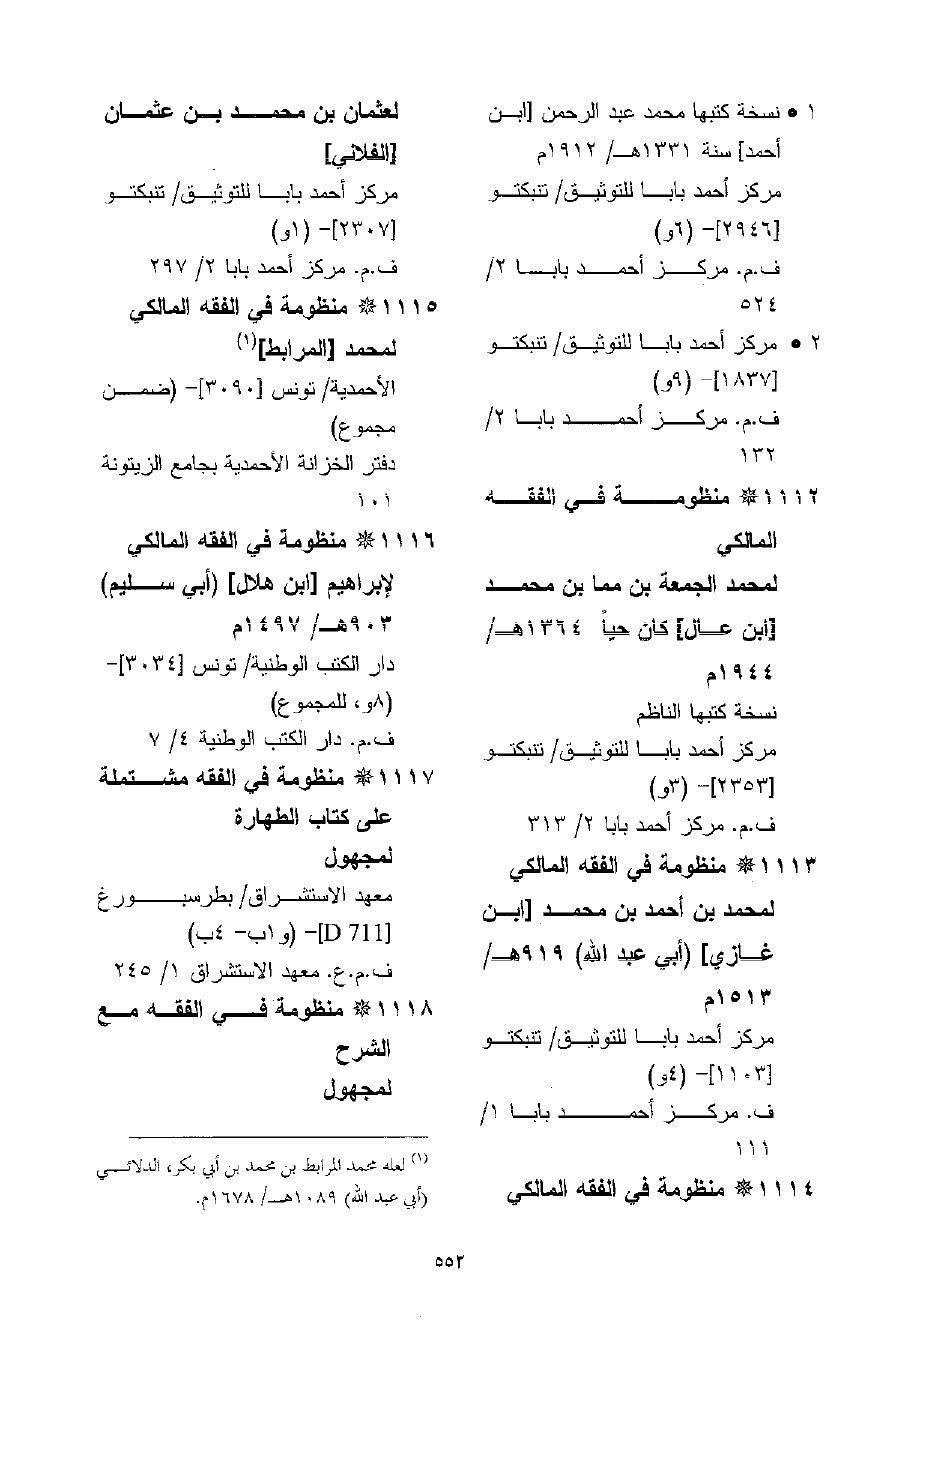 ١ • نسخة كتبها محمد عبد الرحمن [ابن
أحمد] سنة ١٣٣١هـ/ ١٩١٢م
مركز أحمد بابا للتوثيق/ تنبكتو
[٢٩٤٦]- (٦و)
ف.م. مركز أحمد بابا ٢/
٥٢٤
٢ • مركز أحمد بابا للتوثيق/ تنبكتو
[١٨٣٧]- (٩و)
ف.م. مركز أحمد بابا ٢/
١٣٢
١١١٢ ❋ منظومة في الفقه
المالكي
لمحمد الجمعة بن مما بن محمد
[ابن عال] كان حياً ١٣٦٤هـ/
١٩٤٤م
نسخة كتبها الناظم
مركز أحمد بابا للتوثيق/ تنبكتو
[٢٣٥٣]- (٣و)
ف.م. مركز أحمد بابا ٢/ ٣١٣
١١١٣ ❋ منظومة في الفقه المالكي
لمحمد بن أحمد بن محمد [ابن
غازي] (أبي عبد الله) ٩١٩هـ/
١٥١٣م
مركز أحمد بابا للتوثيق/ تنبكتو
[١١٠٣]- (٤و)
ف. مركز أحمد بابا ١/
١١١
١١١٤ ❋ منظومة في الفقه المالكي
لعثمان بن محمد بن عثمان
[الفلاني]
مركز أحمد بابا للتوثيق/ تنبكتو
[٢٣٠٧]- (١و)
ف.م. مركز أحمد بابا ٢/ ٢٩٧
١١١٥ ❋ منظومة في الفقه المالكي
لمحمد [المرابط](١)
الأحمدية/ تونس [٣٠٩٠]- (ضمن
مجموع)
دفتر الخزانة الأحمدية بجامع الزيتونة
١٠١
١١١٦ ❋ منظومة في الفقه المالكي
لإبراهيم [ابن هلال] (أبي سليم)
٩٠٣هـ/ ١٤٩٧م
دار الكتب الوطنية/ تونس [٣٠٣٤]-
(٨و، للمجموع)
ف.م. دار الكتب الوطنية ٤/ ٧
١١١٧ ❋ منظومة في الفقه مشتملة
على كتاب الطهارة
لمجهول
معهد الاستشراق/ بطرسبورغ
[D 711]- (و١ب- ٤ب)
ف.م.ع. معهد الاستشراق ١/ ٢٤٥
١١١٨ ❋ منظومة في الفقه مع
الشرح
لمجهول
(١) لعله محمد المرابط بن محمد بن أبي بكر، الدلائي
(أبي عبد الله) ١٠٨٩هـ/ ١٦٧٨م.
٥٥٢